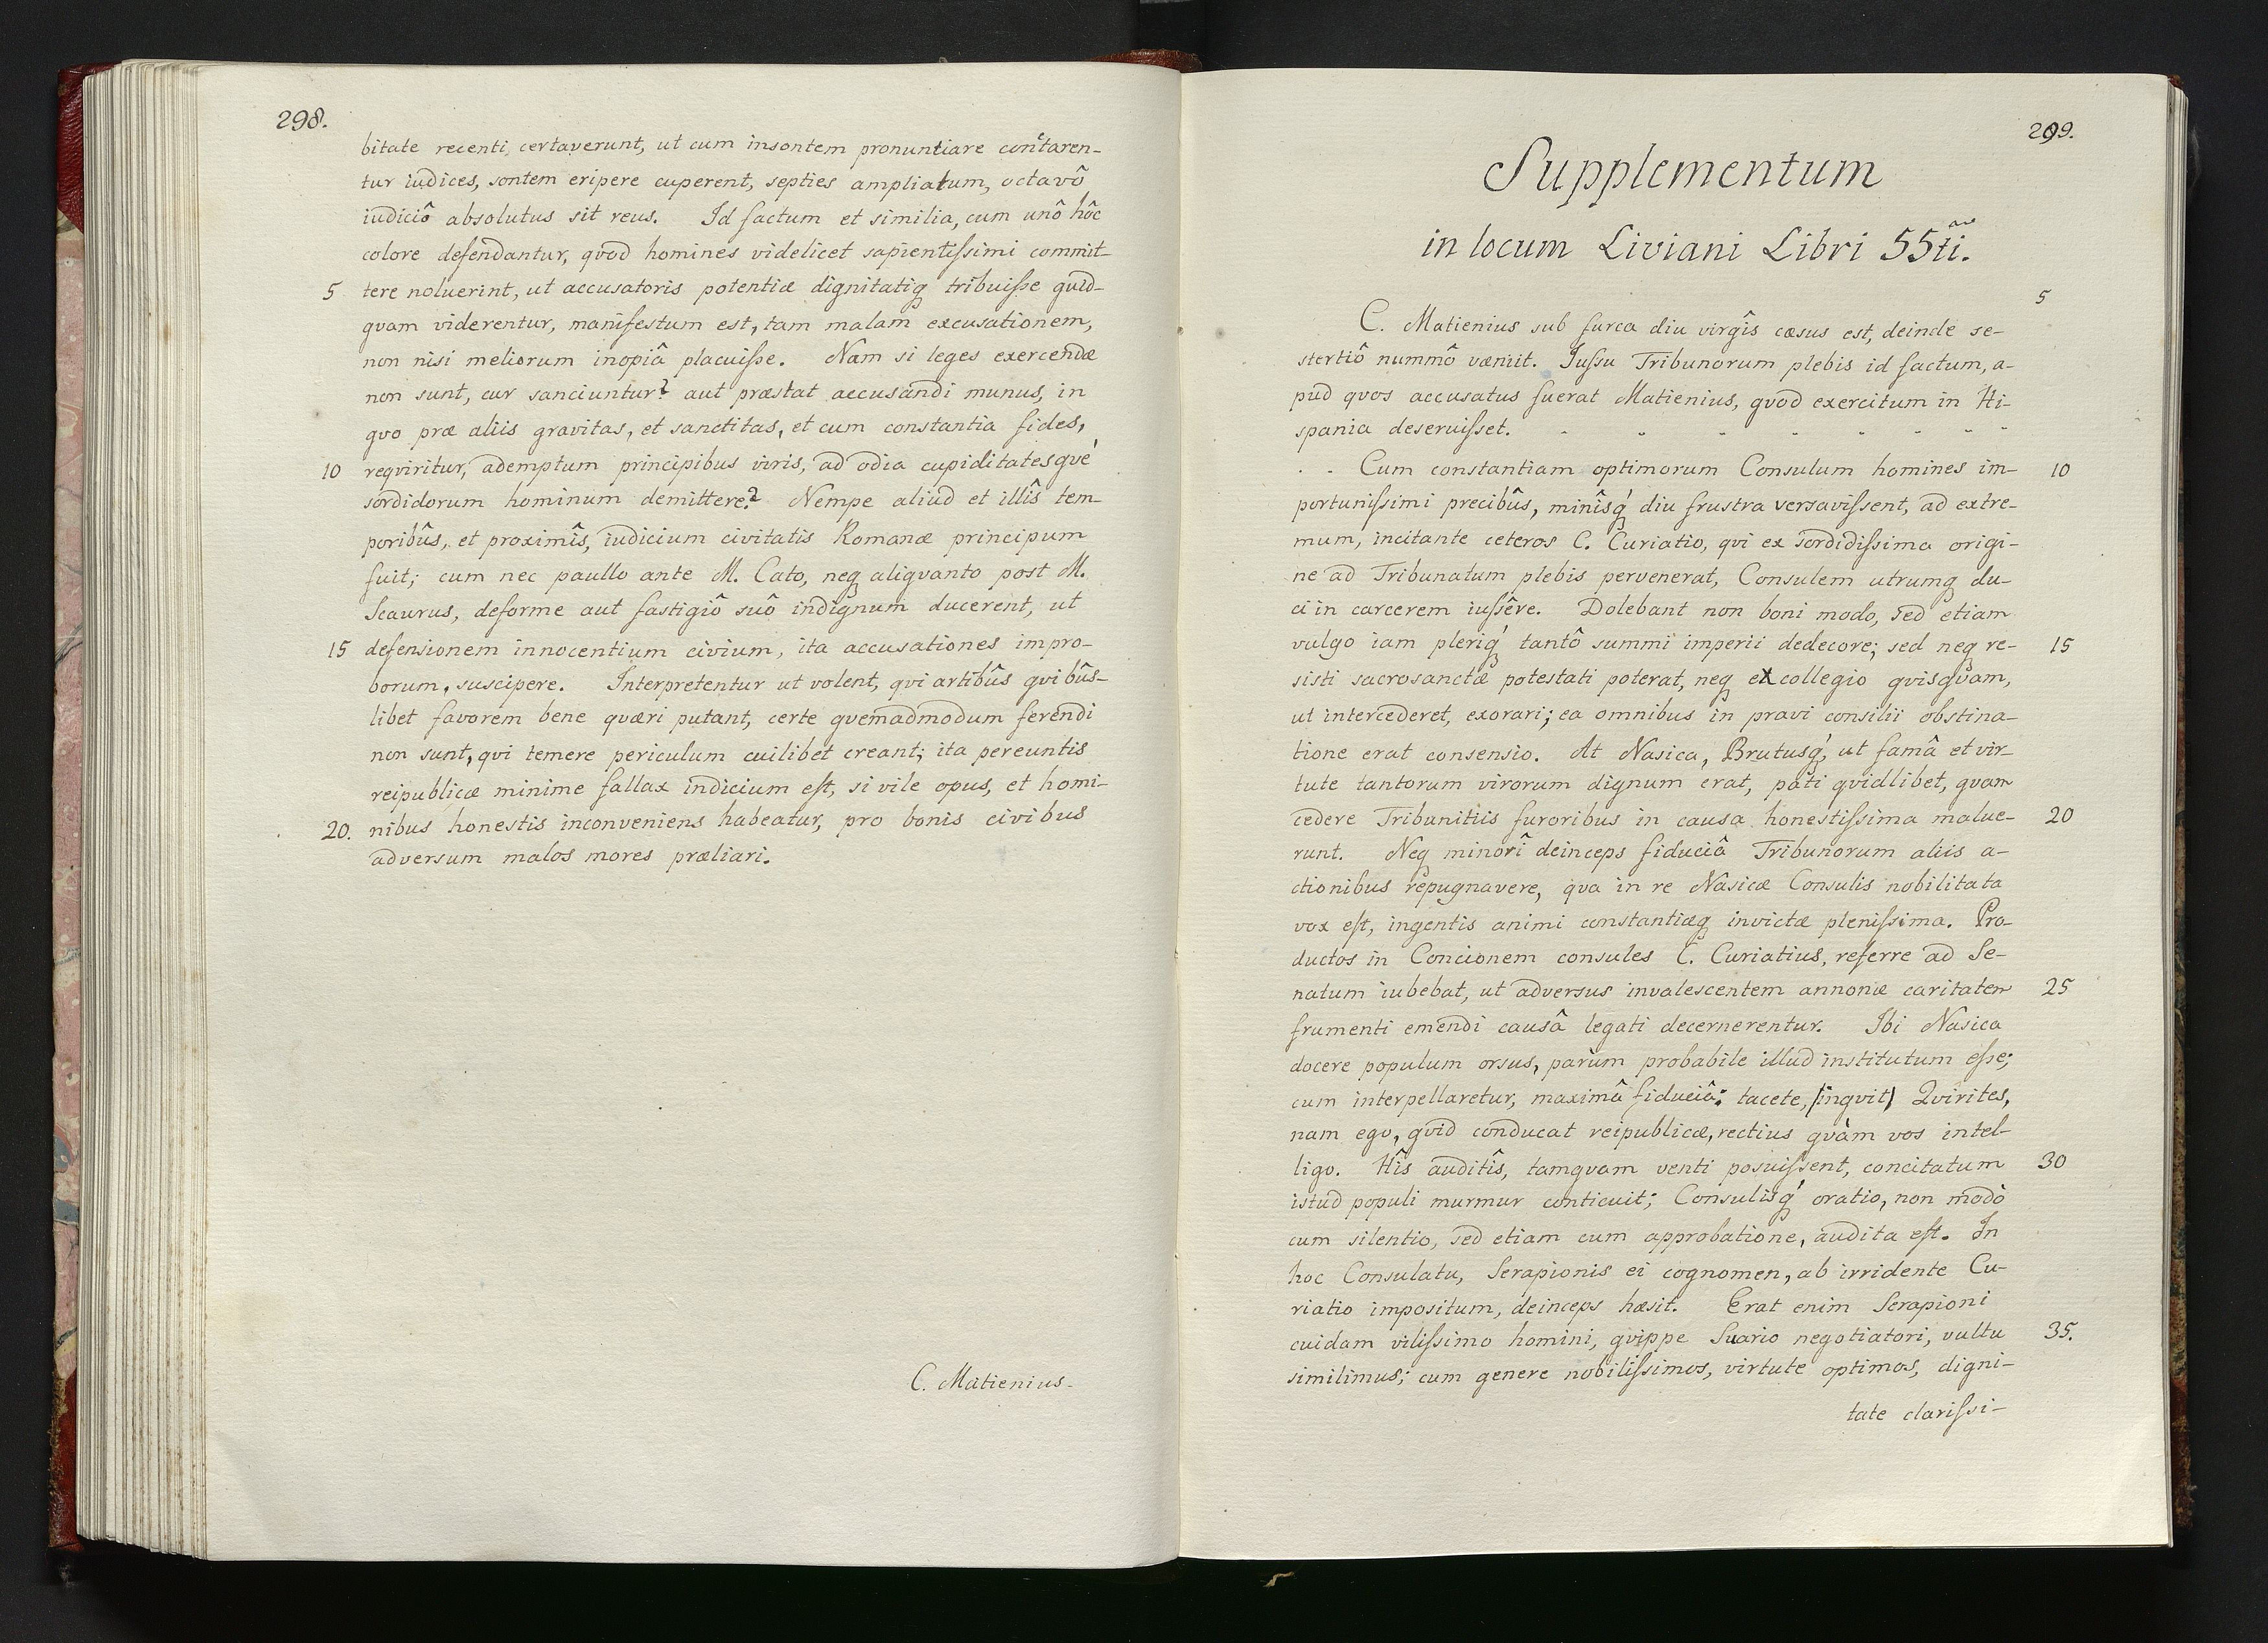 298.
bitate recenti certaverunt, ut cum insontem pronuntiare conctaren-
tur iudices, sontem eripere cuperent, septies ampliatum, octavô
iudiciô absolutus sit reus. Id factum et similia, cum unô hôc
colore defendantur, qvod homines videlicet sapientissimi commit-
5 tere noluerint, ut accusatoris potentiæ dignitatiq tribuisse quid-
qvam viderentur, manifestum est, tam malam excusationem,
non nisi meliorum inopiâ placuisse. Nam si leges exercendæ
non sunt, cur sanciuntur? aut præstat accusandi munus, in
qvo præ aliis gravitas, et sanctitas, et cum constantia fides,
10 reqviritur, ademptum principibus viris, ad odia cupiditatesqvé
sordidorum hominum demittere? Nempe aliud et illîs tem-
poribûs, et proximîs, iudicium civitatis Romanæ principum
fuit; cum nec paullo ante M. Cato, neq aliqvanto post M.
Scaurus, deforme aut fastigiô suô indignum ducerent, ut
15 defensionem innocentium civium, ita accusationes impro-
borum, suscipere. Interpretentur ut volent, qvi artibûs qvibûs-
libet favorem bene qværi putant, certe qvemadmodum ferendi
non sunt, qvi temere periculum cuilibet creant; ita pereuntis
reipublicæ minime fallax indicium est, si vile opus, et homi-
20. nibus honestis inconveniens habeatur, pro bonis civibus
adversum malos mores præliari.
C. Matienius.
299.
Supplementum
in locum Liviani Libri 55ti.
5
C. Matienius sub furca diu virgîs cæsus est, deinde se-
stertiô nummô væniit. Iussu Tribunorum plebis id factum, a-
pud qvos accusatus fuerat Matienius, qvod exercitum in Hi-
spania deseruisset. - - - - - - - -
. - Cum constantiam optimorum Consulum homines im- 10
portunissimi precibûs, minîsq́ diu frustra versavissent, ad extre-
mum, incitante ceteros C. Curiatio, qvi ex sordidissima origi-
ne ad Tribunatum plebis pervenerat, Consulem utrumq du-
ci in carcerem iussêre. Dolebant non boni modo, sed etiam
vulgo iam pleriq́ tantô summi imperii dedecore; sed neq re- 15
sisti sacrosanctæ potestati poterat, neq ex collegio qvisqvam,
ut intercederet, exorari; ea omnibus in pravi consilii obstina-
tione erat consensio. At Nasica, Brutusq́, ut famâ et vir-
tute tantorum virorum dignum erat, pati qvidlibet, qvam
cedere Tribunitiis furoribus in causa honestissima malue- 20
runt. Neq minorî deinceps fiduciâ Tribunorum aliis a-
ctionibus repugnavere, qva in re Nasicæ Consulis nobilitata
vox est, ingentis animi constantiæq invictæ plenissima. Pro-
ductos in Concionem consules C. Curiatius, referre ad Se-
natum iubebat, ut adversus invalescentem annonæ caritatem 25
frumenti emendi causâ legati decernerentur. Ibi Nasica
docere populum orsus, parùm probabile illud institutum esse;
cum interpellaretur, maximâ fiduciâ: tacete, /inqvit/ Qvirites,
nam ego, qvid conducat reipublicæ, rectius qvàm vos intel-
ligo. Hîs auditîs, tamqvam venti posuissent, concitatum 30
istud populi murmur conticuit; Consulisq́ oratio, non modò
cum silentio, sed etiam cum approbatione, audita est. In
hoc Consulatu, Serapionis ei cognomen, ab irridente Cu-
riatio impositum, deinceps hæsit. Erat enim Serapioni
cuidam vilissimo homini, qvippe Suario negotiatori, vultu 35.
similimus; cum genere nobilissimos, virtute optimos, digni-
tate clarissi-